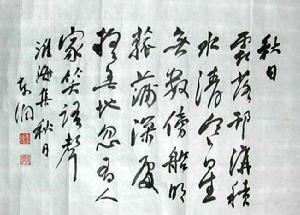 秋日
霜落邗溝積
水清寒星
無數傍船明
菰蒲深處
疑无地忽有人
家笑語聲
淮海集秋日
东润